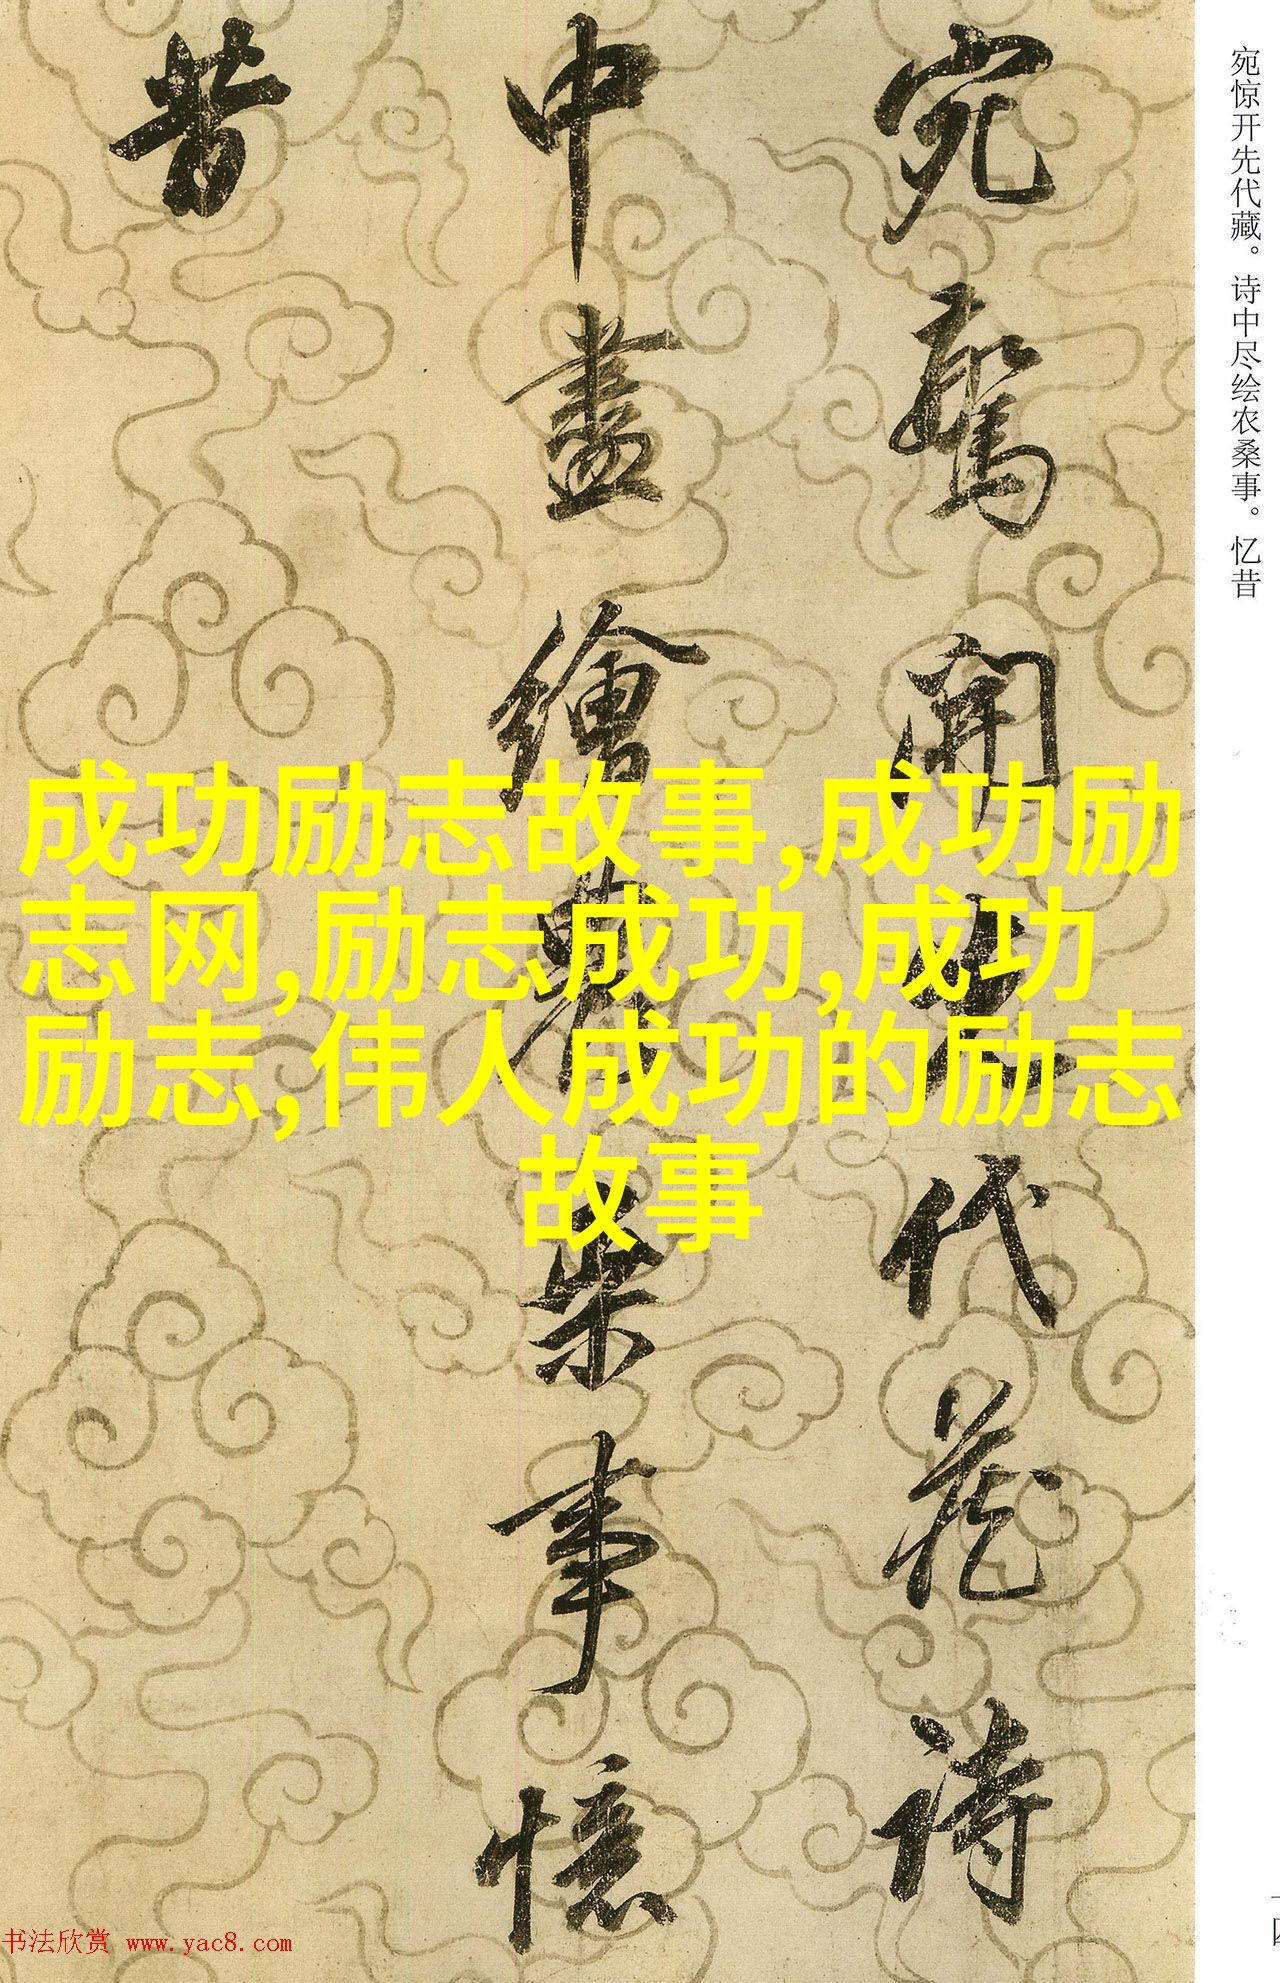 宛惊开先代藏。诗中尽绘农桑事。忆昔
宛驚開先代藏詩
中盡繪農桒事憶
昔
成功励志故事,成功励
志网,励志成功,成功
励志,伟人成功的励志
故事
书法欣赏 www.yac8.com